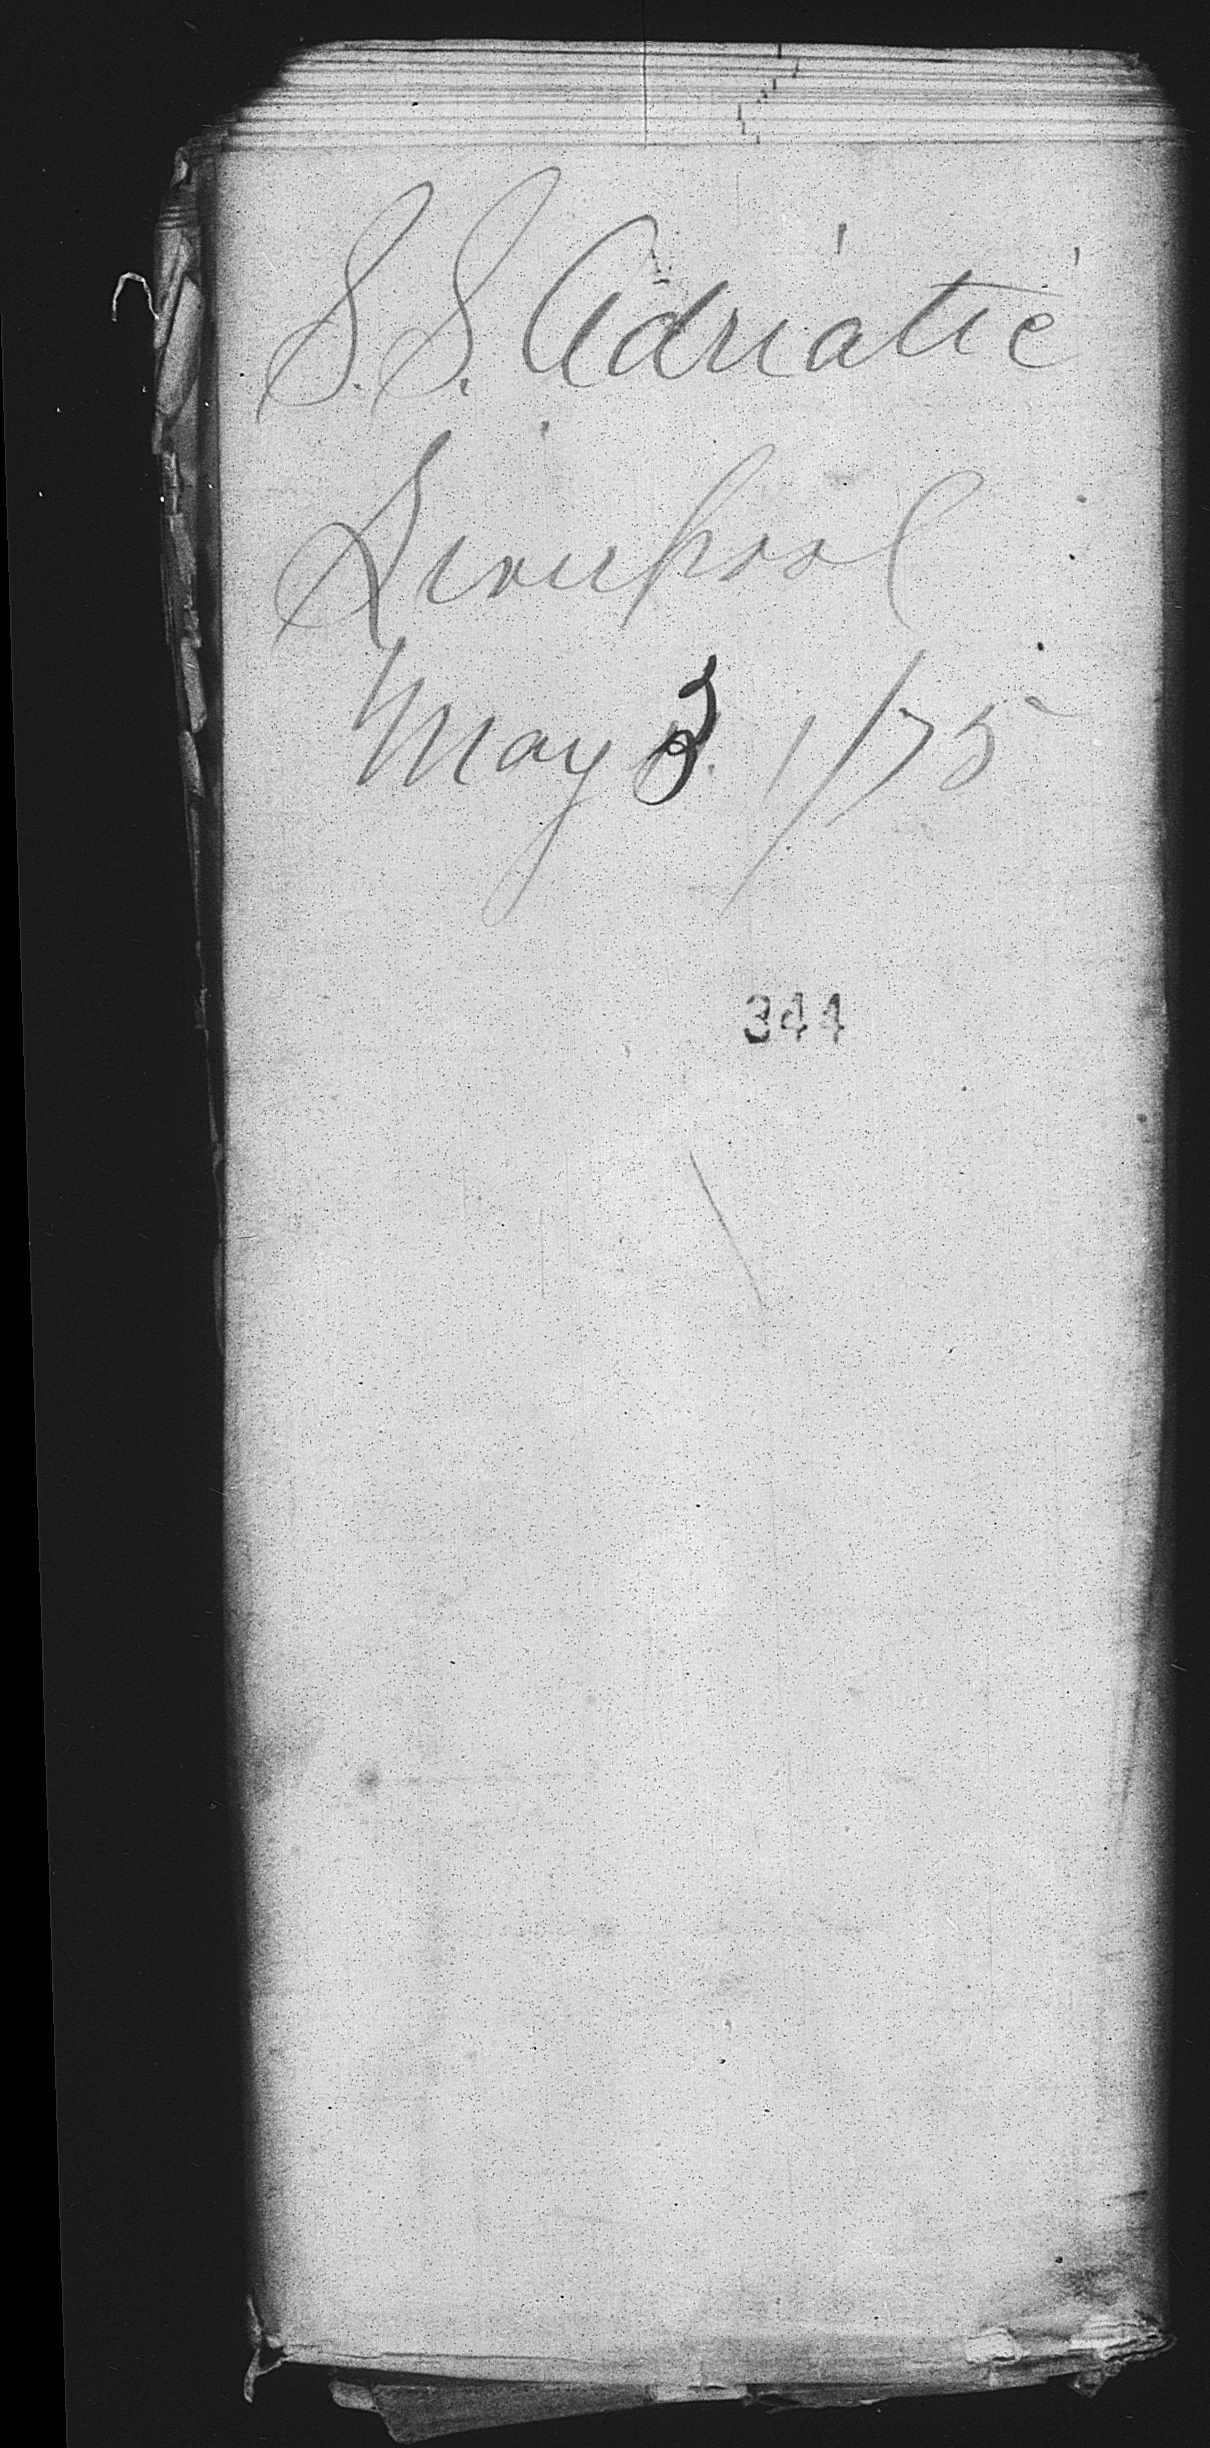 S.S. Adriatic
Liverpool
May 3. 1/75
344